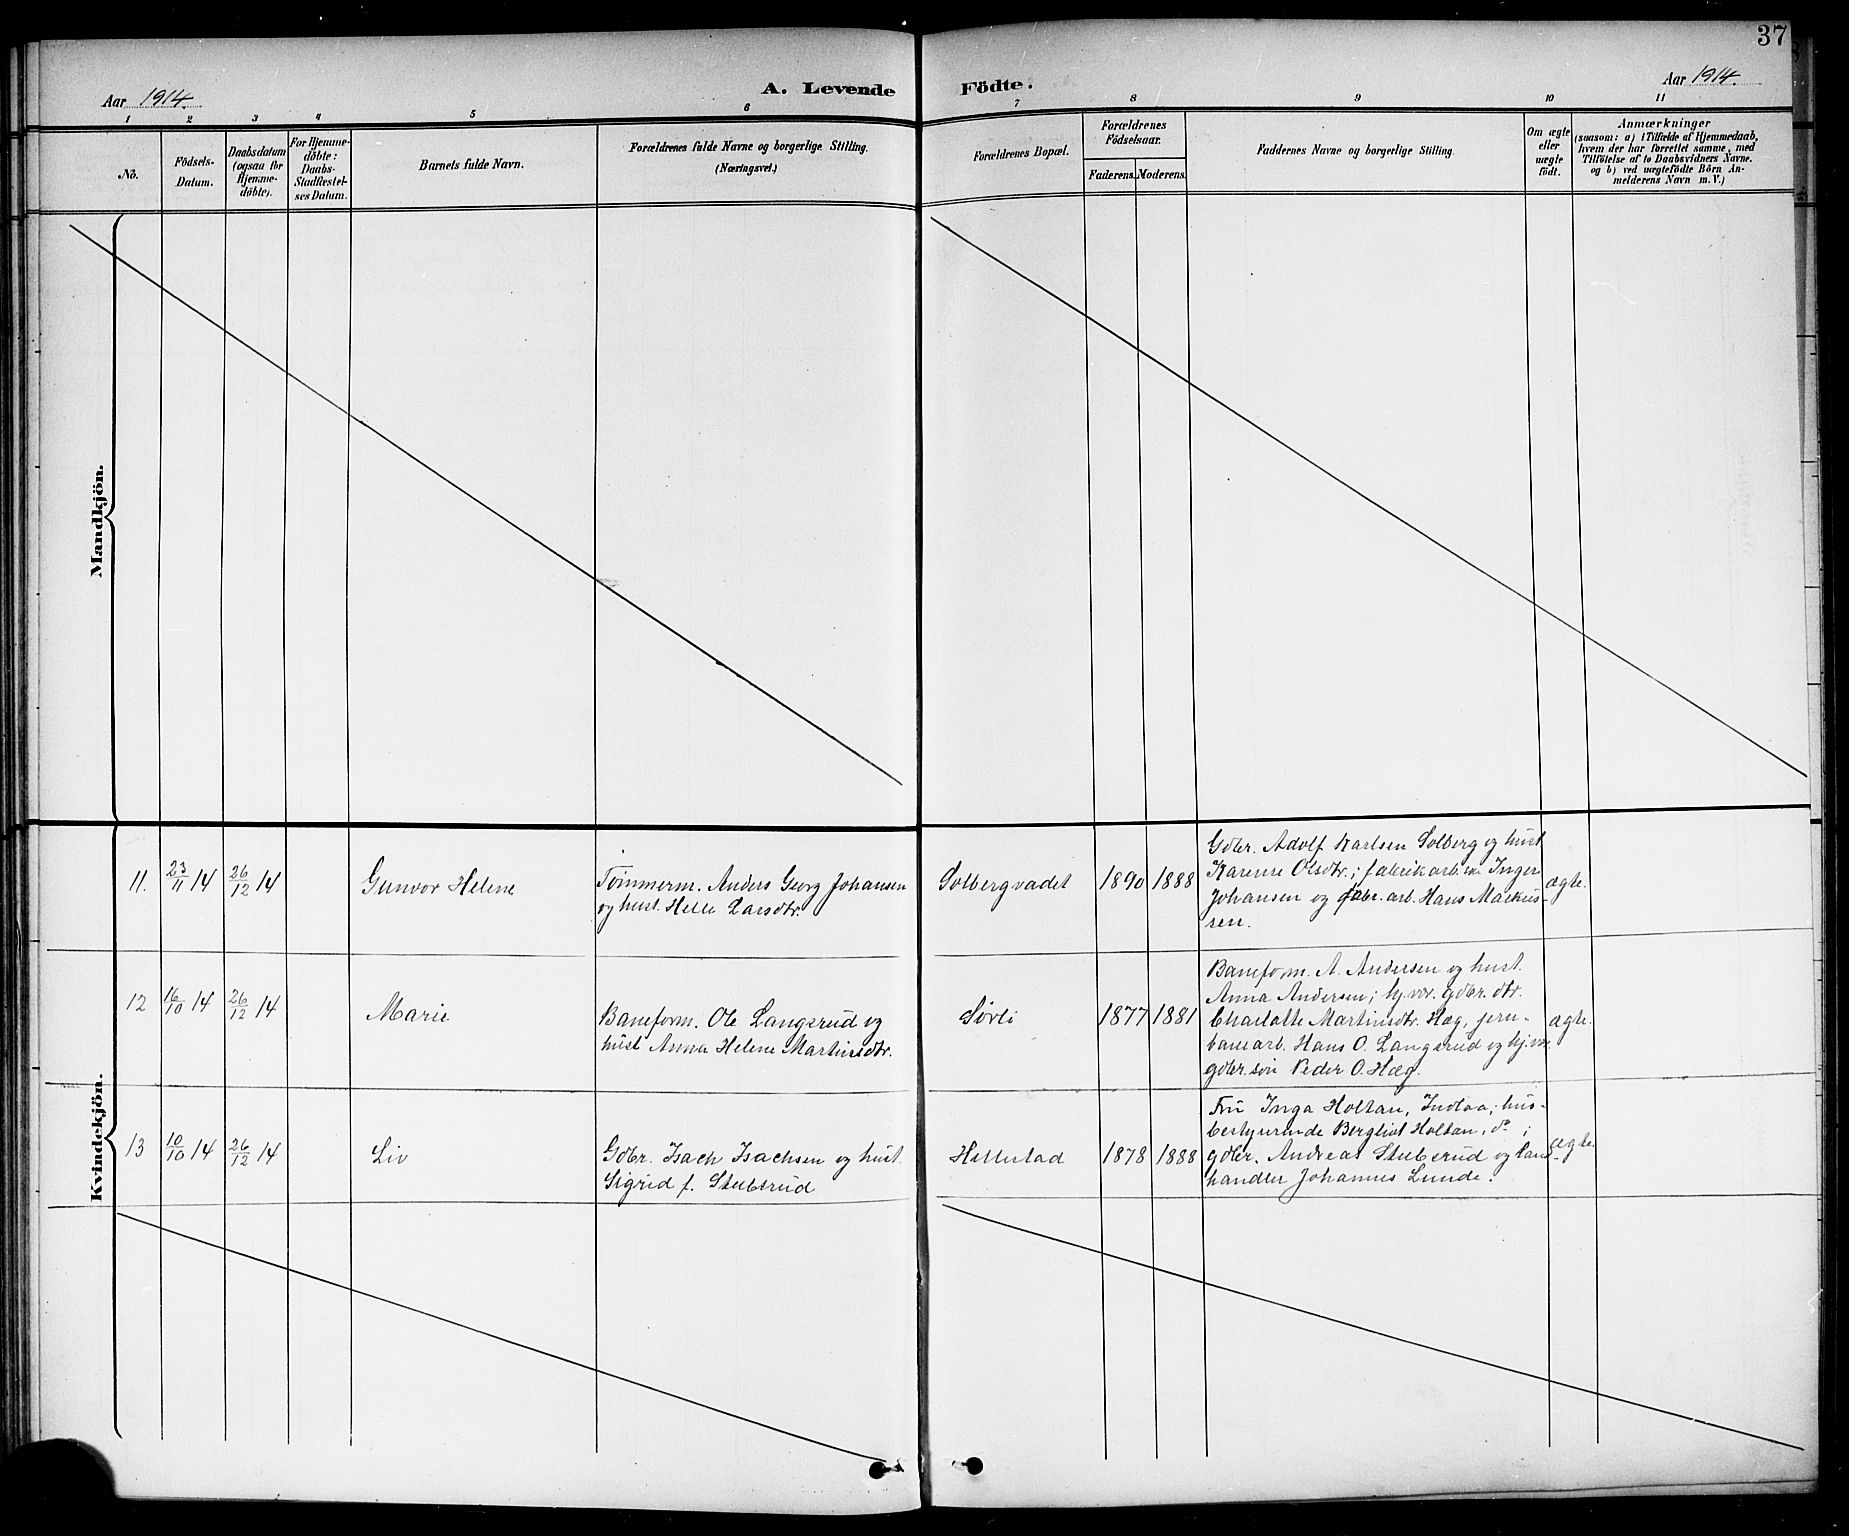 37
Aar 1914.
A. Levende Födte.
Aar 1914.
1 2 3 4 5 6 7 8 9 10 11
No.
Födsels-
Datum.
Daabsdatum
(ogsaa for
Hjemme-
döbte).
For Hjemme-
döbte:
Daabs-
Stadfæstel-
ses Datum.
Barnets fulde Navn.
Forældrenes fulde Navne og borgerlige Stilling.
(Næringsvei.)
Forældrenes Bopæl.
Forældrenes
Födselsaar.
Faderens. Moderens.
Faddernes Navne og borgerlige Stilling.
Om ægte
eller
uægte
födt.
Anmærkninger
(saasom: a) i Tilfælde af Hjemmedaab,
hvem der har forrettet samme, med
Tilföielse af to Daabsvidners Navne.
og b) ved uægtefödte Börn An-
melderens Navn m. V.)
Mandkjön.
Kvindekjön.
11. 23/11 14 26/12 14
Gunvor Helene
Tømmerm. Anders Georg Johansen
og hust. Helle Larsdtr.
Solbergvadet
1890 1888
Gdbr. Adolf Karlsen Solberg og hust.
Karense Olsdtr.; fabrikarb.ske Inger
Johansen og gdbr. arb. Hans Markus-
sen.
ægte.
12 16/10 14 26/12 14
Marie
Baneform. Ole Langsrud og
hust Anna Helene Martinsdtr.
Sørli
1877 1881
Baneform. A. Andersen og hust.
Anna Andersen; hj.vær. gdbr. dtr.
Charlotte Martinsdtr. Hæg, jern-
banearb. Hans O. Langsrud og hj.vær.
gdbr.søn Peder O. Hæg.
ægte.
13 10/10 14 26/12 14
Liv
Gdbr. Isach Isachsen og hust.
Sigrid f. Stubsrud
Hillestad
1878 1888
Fru Inga Holtan, Indloa; hus-
bestyrerinde Bergliot Holtan, do;
gdbr. Andreas Stubsrud og land-
handler Johannes Lunde.
ægte.